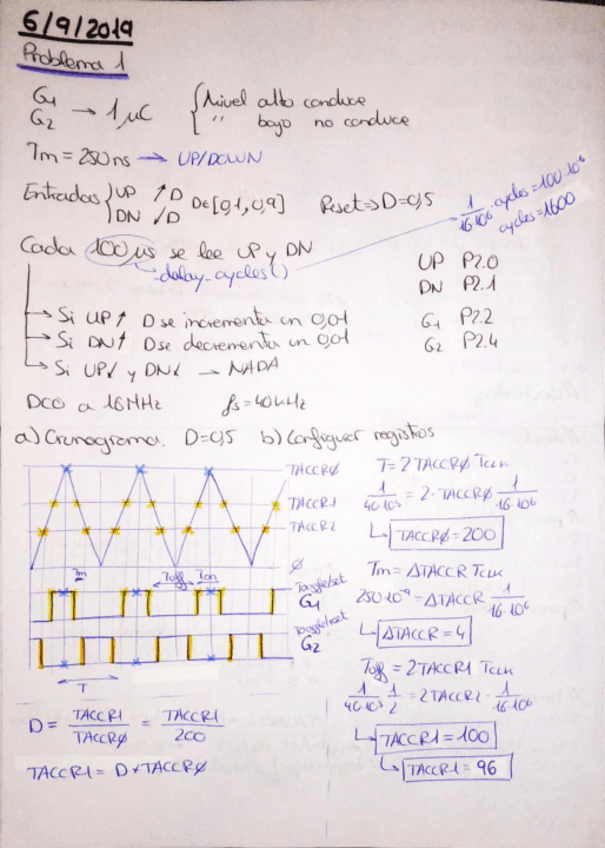 6/9/2019
Problema 1
G1
G2 → 1 μC { Nivel alto conduce
" bajo no conduce
Tm = 250ns → UP/DOWN
Entradas { UP ↑D
DN ↓D D∈[0,1, 0,9] Reset ⇒ D=0,5
1/16·10⁶ · cycles = 100·10⁻⁶
cycles = 1600
Cada 100 μs se lee UP y DN
-delay-cycles()
UP P2.0
DN P2.1
G1 P2.2
G2 P2.4
→ Si UP↑ D se incrementa en 0,01
→ Si DN↑ D se decrementa en 0,01
→ Si UP↓ y DN↓ → NADA
DCO a 16MHz fs = 40kHz
a) Cronograma. D=0,5 b) Configurar registros
TACCRØ
TACCR1
TACCR2
Ø
Tm Toff Ton
Toggle/set
G1
Toggle/reset
G2
T
D = TACCR1/TACCRØ = TACCR1/200
TACCR1 = D * TACCRØ
T = 2 TACCRØ Tclk
1/40·10³ = 2·TACCRØ 1/16·10⁶
↳ TACCRØ = 200
Tm = ΔTACCR Tclk
250·10⁻⁹ = ΔTACCR 1/16·10⁶
↳ ΔTACCR = 4
Toff = 2TACCR1 Tclk
1/40·10³ 1/2 = 2TACCR1 · 1/16·10⁶
↳ TACCR1 = 100
↳ TACCR1 = 96